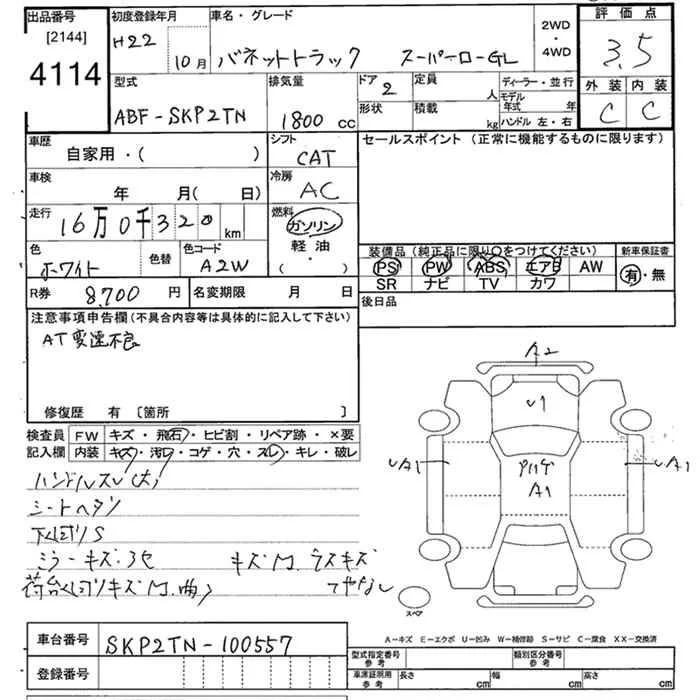 出品番号
[2144]
4114
初度登録年月
H22
10月
車名・グレード
バネットトラック スーパーローGL
2WD
・
4WD
評価点
3.5
外装 内装
C C
型式
ABF-SKP2TN
排気量
1800 cc
ドア 2
形状
定員 人
積載 kg
ディーラー・並行
モデル年式 年
ハンドル 左・右
車歴
自家用・( )
シフト
CAT
セールスポイント(正常に機能するものに限ります)
車検
年 月( 日)
冷房
AC
走行
16万0千320 km
燃料
ガソリン
軽油
・
( )
色
ホワイト
色替
色コード
A2W
装備品(純正品に限り○をつけてください)
PS PW ABS エアB AW
SR ナビ TV カワ
新車保証書
有・無
R券 8,700 円
名変期限 月 日
後日品
注意事項申告欄(不具合内容等は具体的に記入して下さい)
AT変速不良
修復歴 有 [箇所 ]
検査員
記入欄
FW キズ・飛石・ヒビ割・リペア跡・×要
内装 キズ・汚れ・コゲ・穴・スレ・キレ・破レ
ハンドルスレ(大)
シートヘタリ
下回りS
ミラーキズ・3セ キズM.ラスキズ
荷台回りキズM.曲り
A2
U1
A1
A1
A1
スペア
A-キズ E-エクボ U-凹み W-補修跡 S-サビ C-腐食 XX-交換済
車台番号 SKP2TN-100557
登録番号
型式指定番号
参考
類別区分番号
参考
車庫証明用
参考
長さ cm
幅 cm
高さ cm